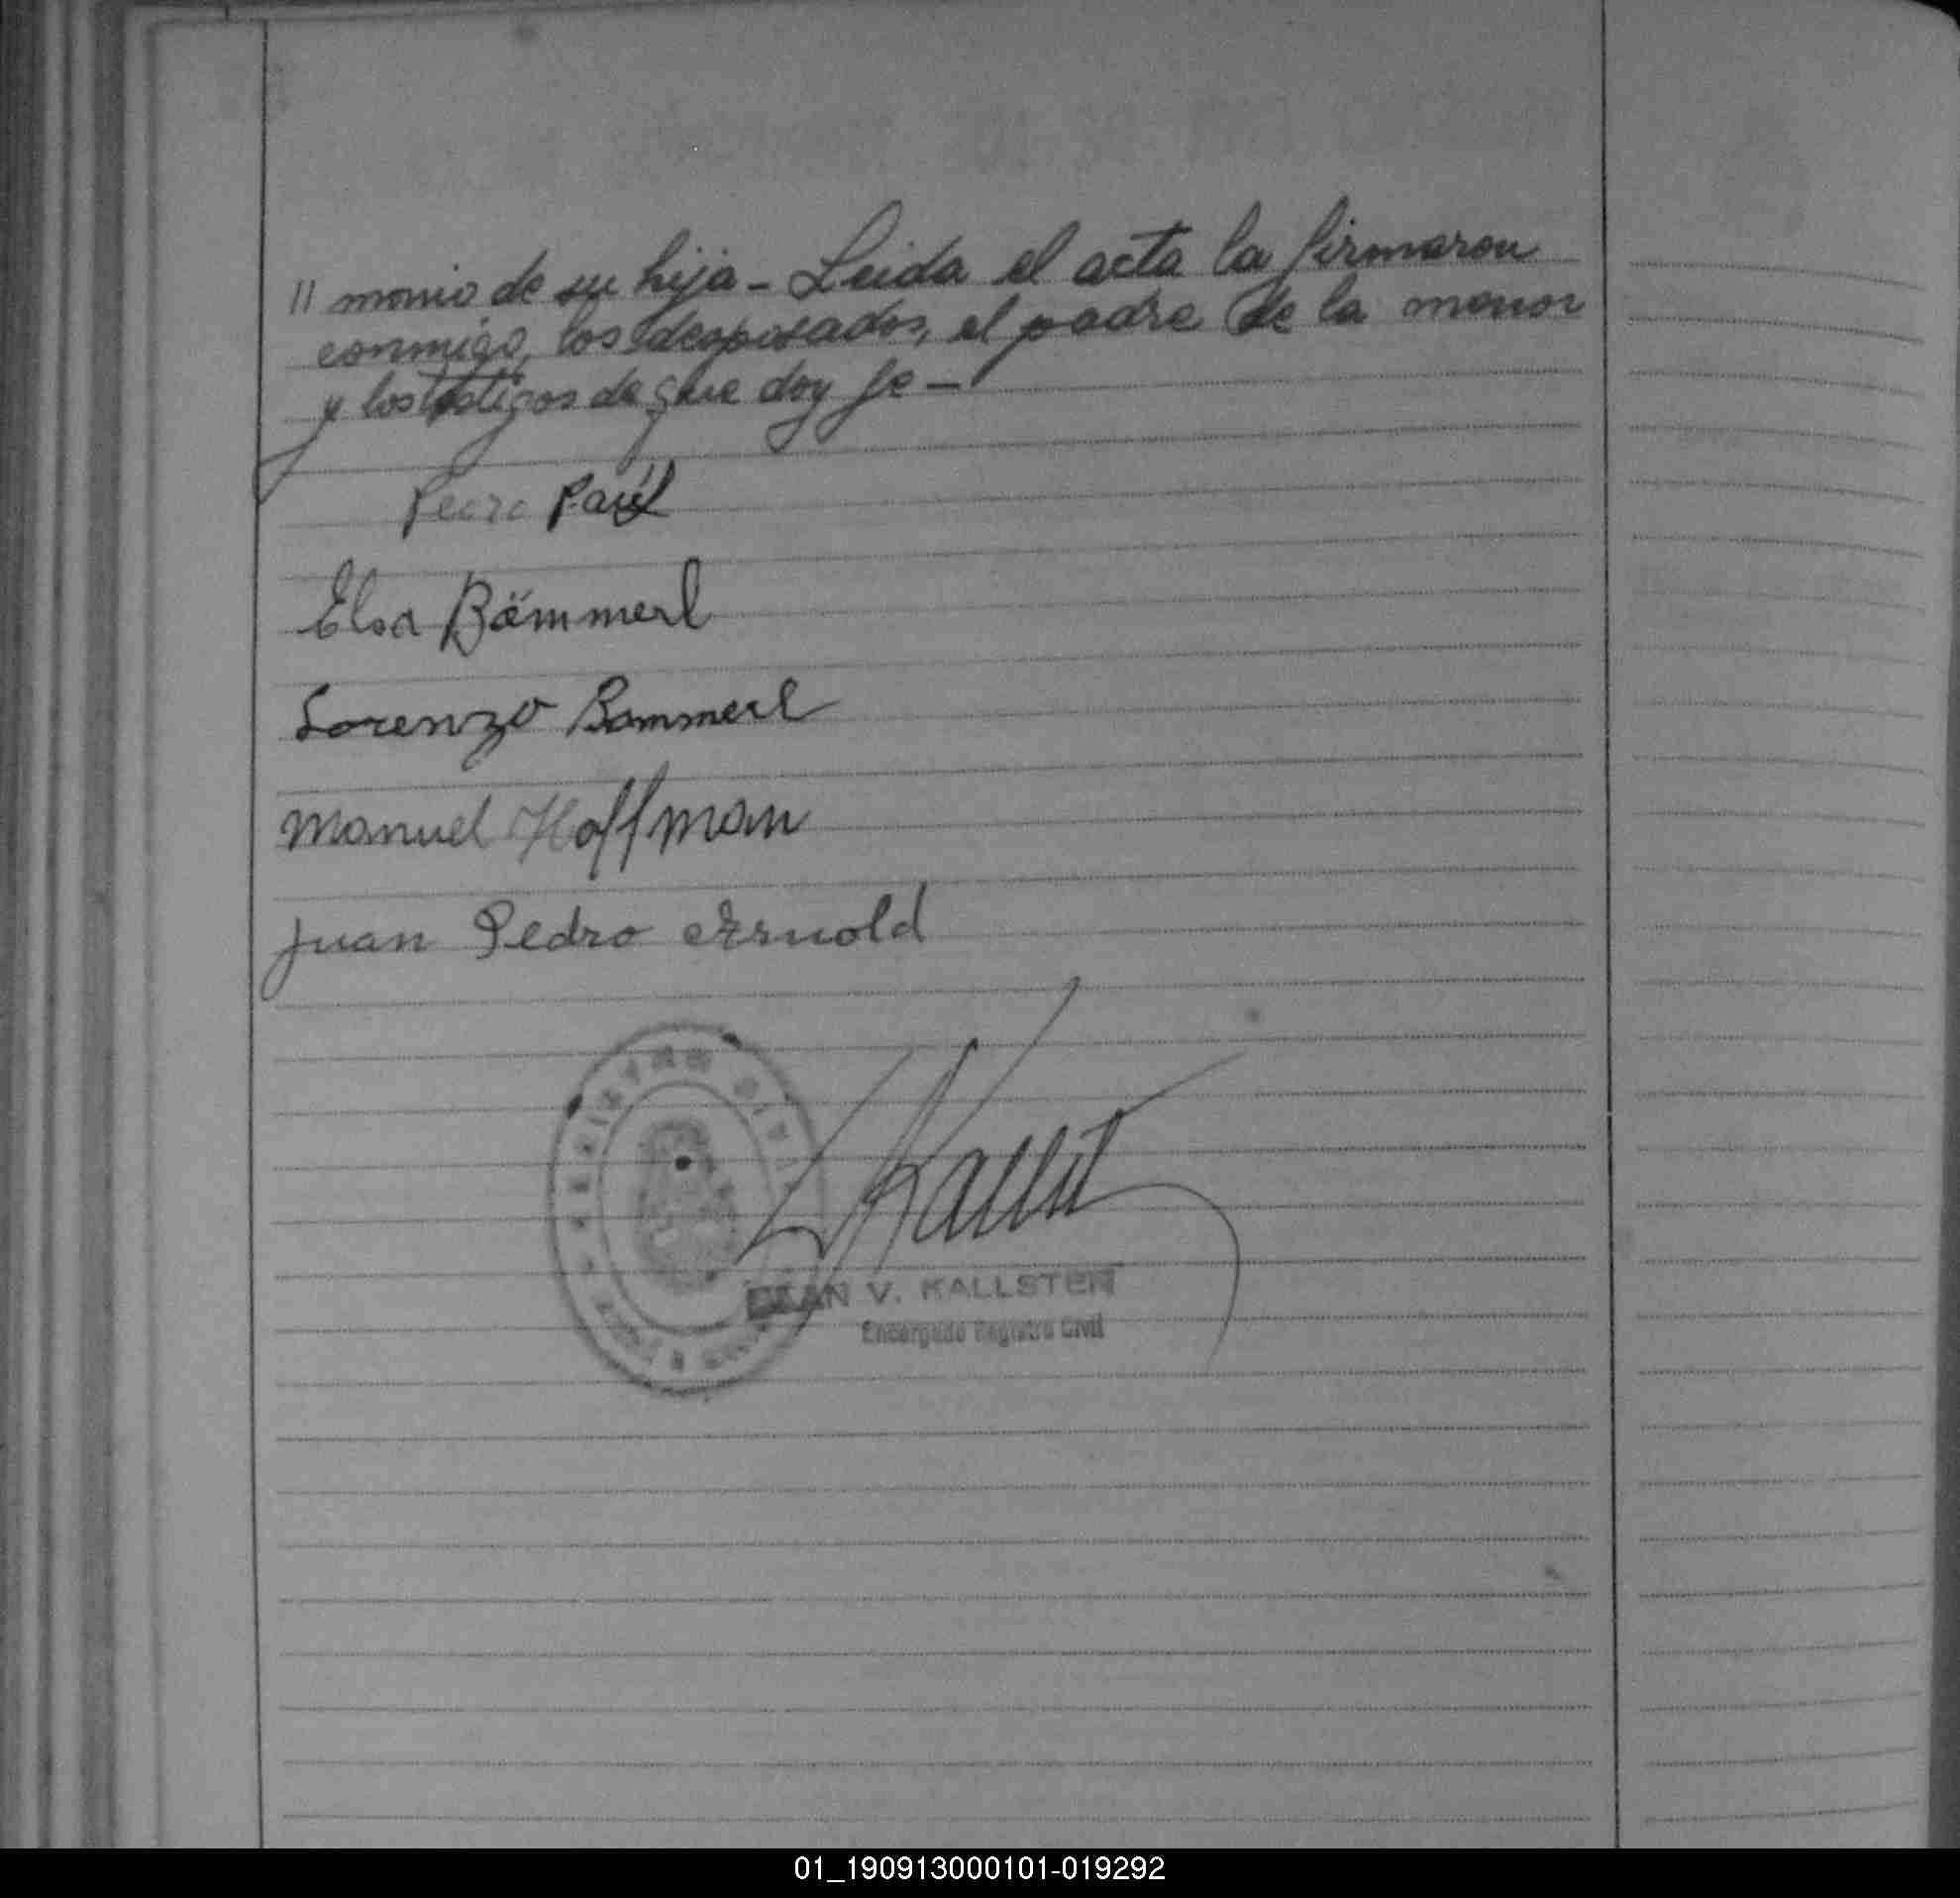 // monio de su hija - Leida el acta la firmaron
conmigo, los desposados, el padre de la menor
y los testigos de que doy fe -
Pedro Paúl
Elsa Bömmerl
Lorenzo Bommerl
Manuel Hoffman
Juan Pedro Arnold
REGISTRO CIVIL
V. KALLSTEN
Encargado Registro Civil
01_190913000101-019292